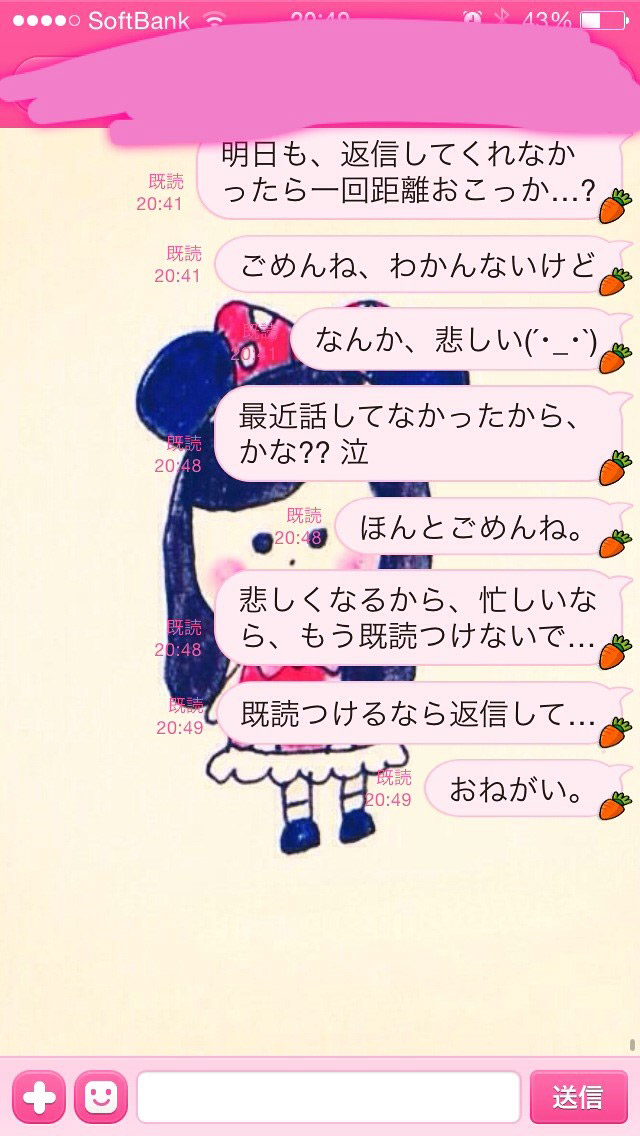 SoftBank
20:49
43%
明日も、返信してくれなか
ったら一回距離おこっか…?
既読
20:41
ごめんね、わかんないけど
既読
20:41
なんか、悲しい(´･_･`)
既読
20:41
最近話してなかったから、
かな?? 泣
既読
20:48
ほんとごめんね。
既読
20:48
悲しくなるから、忙しいな
ら、もう既読つけないで…
既読
20:48
既読つけるなら返信して…
既読
20:49
おねがい。
既読
20:49
送信